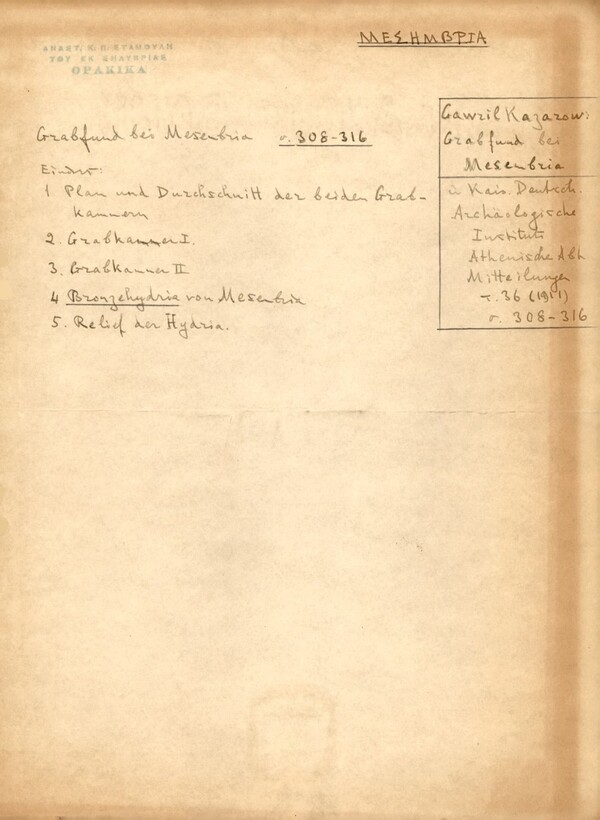 ΜΕΣΗΜΒΡΙΑ
ΑΝΑΣΤ. Κ. Π. ΣΤΑΜΟΥΛΗ
ΤΟΥ ΕΚ ΣΗΛΥΒΡΙΑΣ
ΘΡΑΚΙΚΑ
Grabfund bei Mesembria σ. 308-316
1. Plan und Durchschnitt der beiden Grab-
kammern
2. Grabkammer I.
3. Grabkammer II
4 Bronzehydria von Mesembria
5. Relief der Hydria.
Gawril Kazarow:
Grabfund bei
Mesembria
in Kais. Deutsch.
Archäologische
Instituts
Athenische Abt
Mitteilungen
τ. 36 (1911)
σ. 308-316